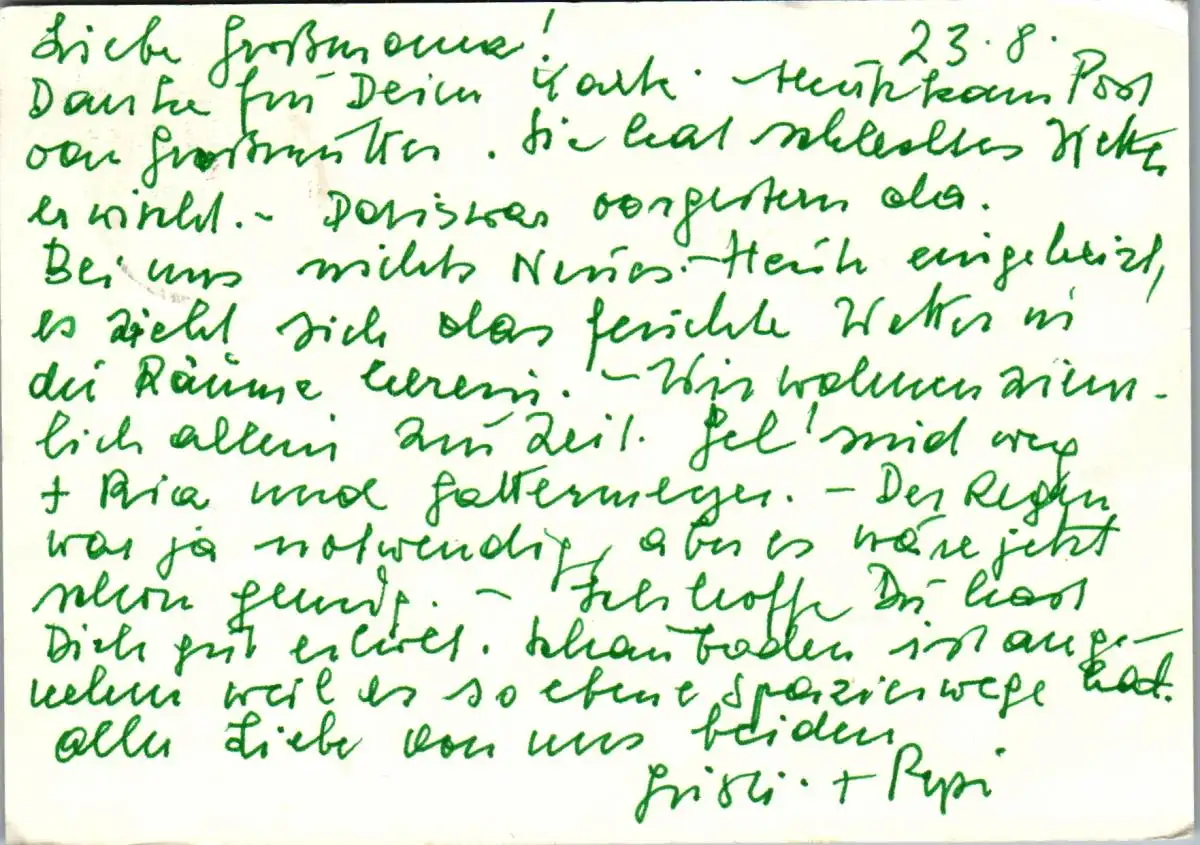 Liebe Großmama! 23.8.
Danke für Deine Karte. Heute kam Post
von Großmutter. Sie hat schlechtes Wetter
erwischt.- Doris war vorgestern da.
Bei uns nichts Neues.- Heute eingeheizt,
es zieht sich das feuchte Wetter in
die Räume herein. - Wir wohnen ziem-
lich allein zur Zeit. sind weg
+ Ria und Gattermeyer. - Der Regen
war ja notwendig, aber es wäre jetzt
schon genug. - Ich hoffe Du hast
Dich gut erholt. ist ange-
nehm weil es so ebene Spazierwege hat.
alles Liebe von uns beiden
+ Pepi